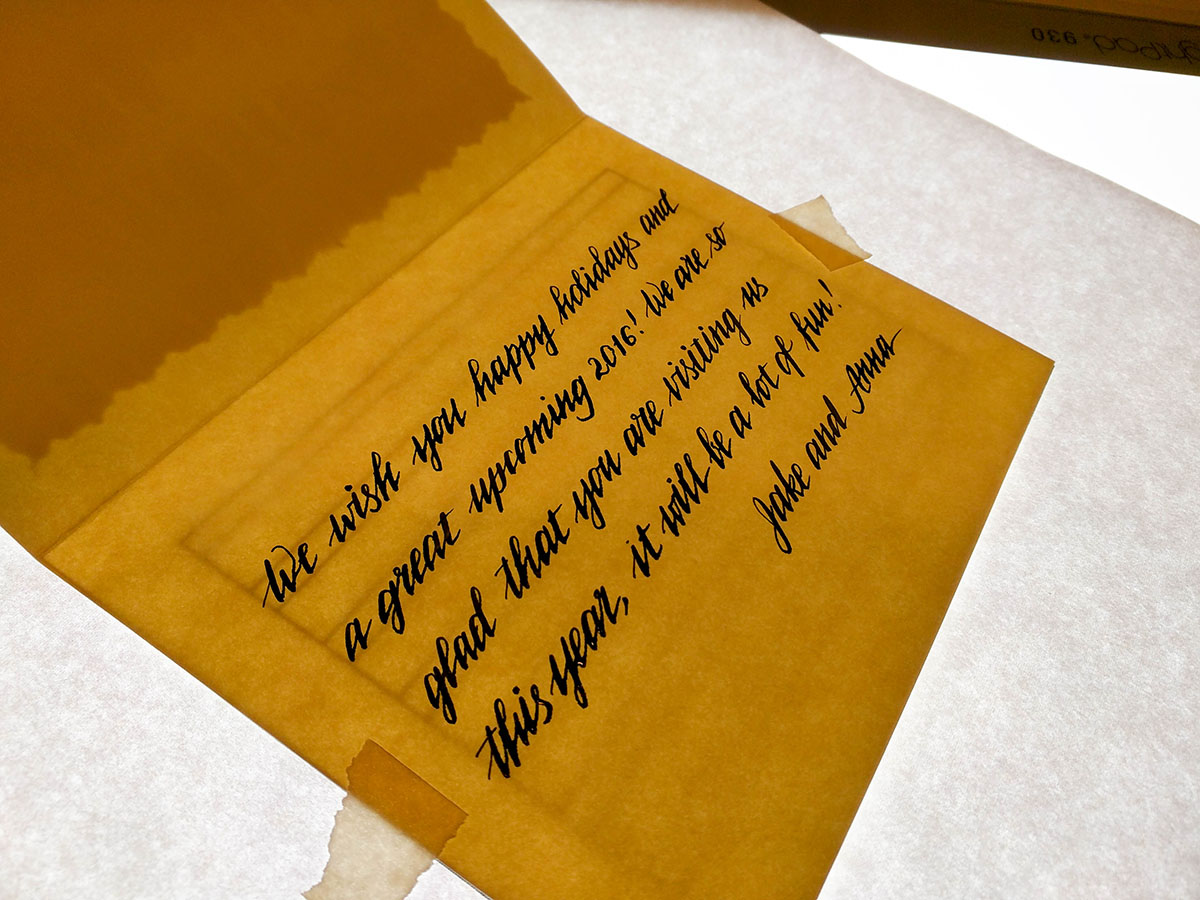 We wish you happy holidays and
a great upcoming 2016! We are so
glad that you are visiting us
this year, it will be a lot of fun!
Jake and Anna
930